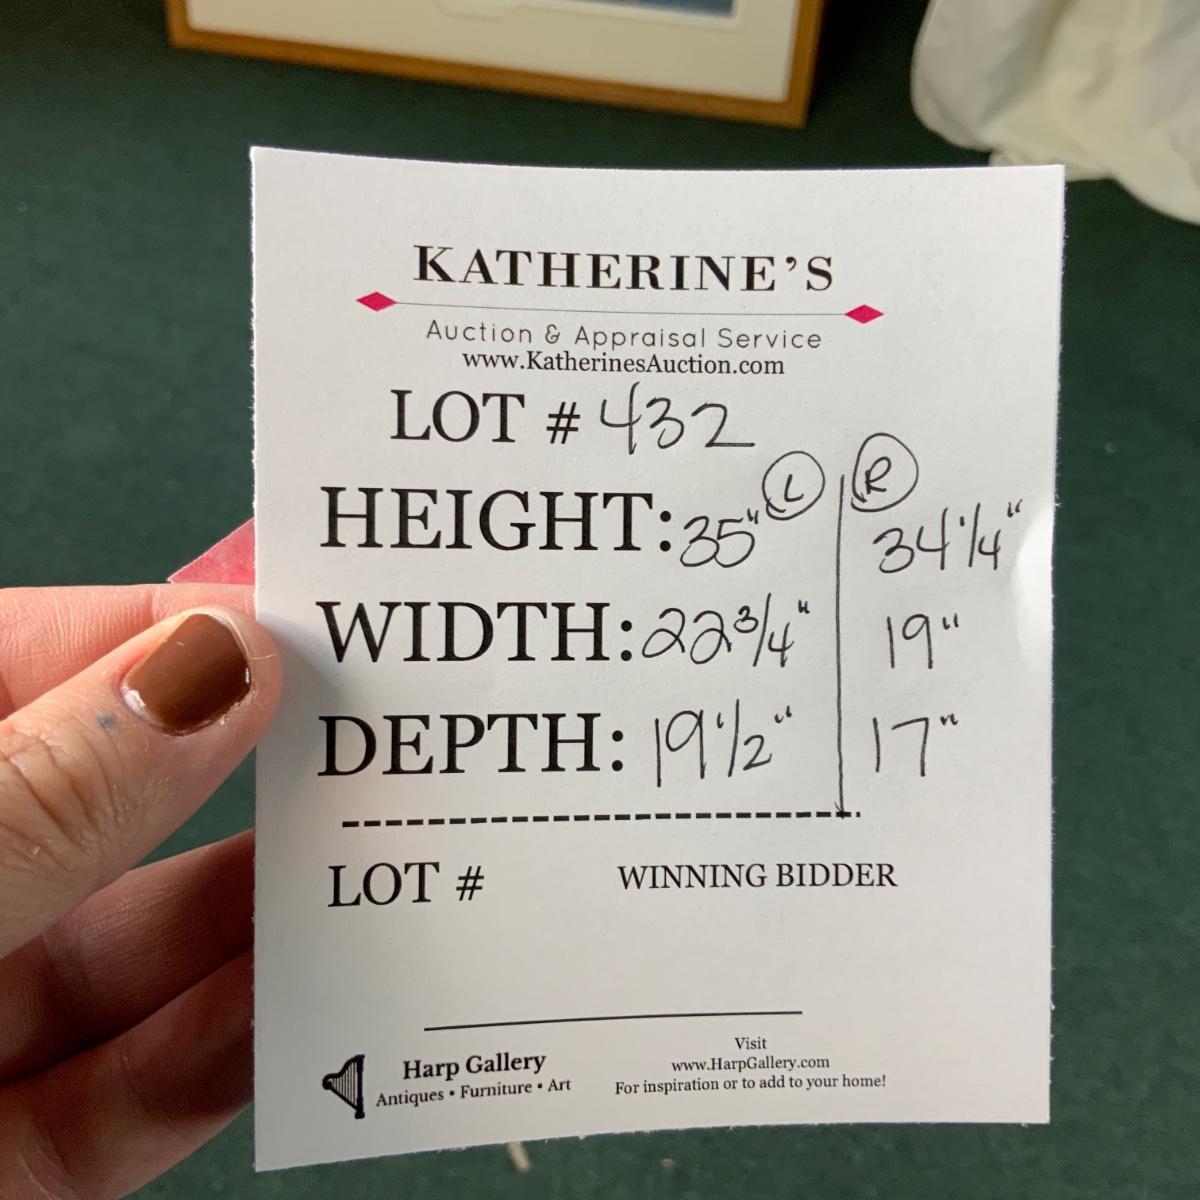 KATHERINE'S
Auction & Appraisal Service
www.KatherinesAuction.com
LOT # 432
L R
HEIGHT: 35" 34 1/4"
WIDTH: 22 3/4" 19"
DEPTH: 19 1/2" 17"
LOT # WINNING BIDDER
Harp Gallery
Antiques • Furniture • Art
Visit
www.HarpGallery.com
For inspiration or to add to your home!